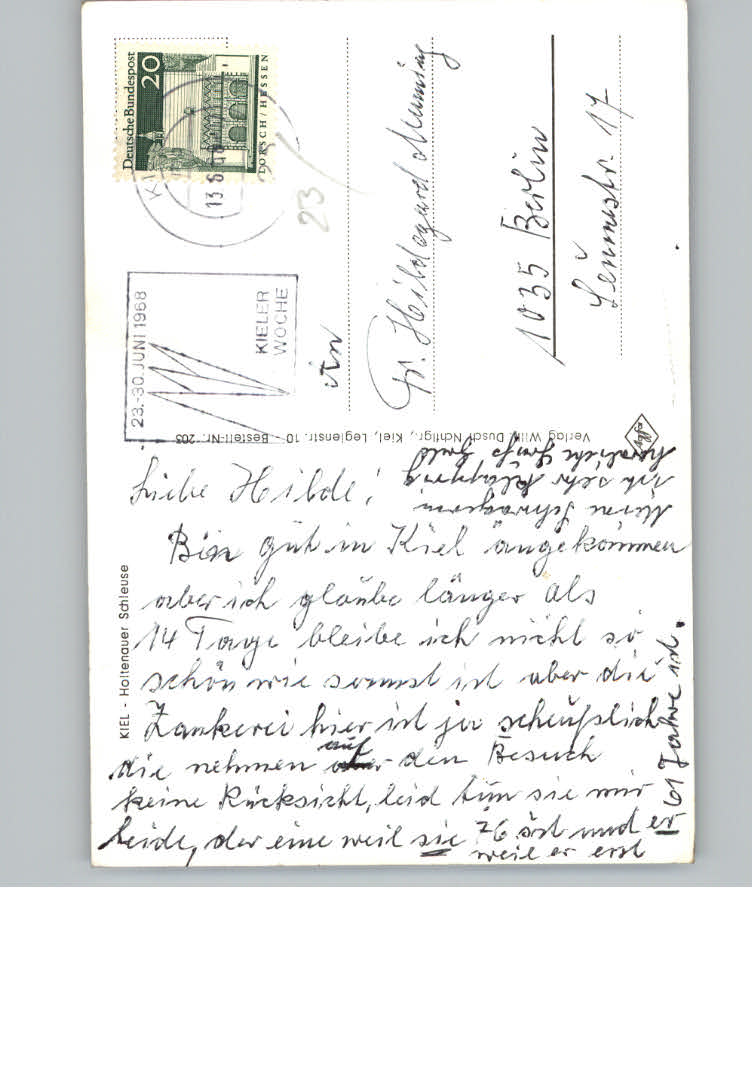 Deutsche Bundespost
20
LORSCH / HESSEN
13.6
23
23.-30. JUNI 1968
KIELER
WOCHE
An
Fr. Hildegard
1035 Berlin
17
Verlag Willy Dusch Nchflgr., Kiel, Legienstr. 10 - Bestell-Nr. 203
KIEL - Holtenauer Schleuse
Liebe Hilde!
Bin gut in Kiel angekommen
aber ich glaube länger als
14 Tage bleibe ich nicht so
schön wie sonnst ist aber die
Zankerei hier ist ja scheußlich
die nehmen auf den Besuch
keine Rücksicht, leid tun sie mir
beide, der eine weil sie 76 ist und er
weil er erst
61 Jahre ist.
Meine Schwägerin
ist sehr klapprig
herzliche Grüße